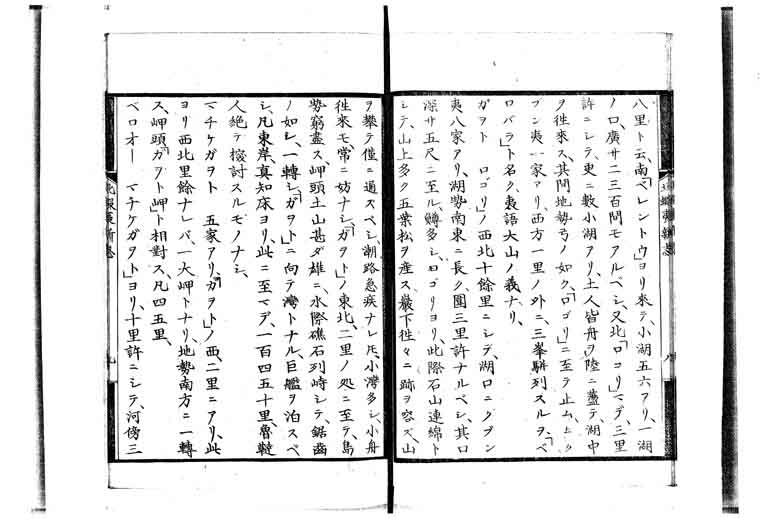 八里ト云、南「ベレントウ」ヨリ來テ小湖五六アリ、一湖
ノ口、廣サ二三百間モアルベシ、又北「ロコリ」マデ三里
許ニシテ、更ニ數小湖アリ、土人皆舟ヲ陸ニ盪テ湖中
ヲ徃來ス、其間地勢弓ノ如ク、「ロゴリ」ニ至テ止ム、ヒク
ブン夷一家アリ、西方一里ノ外ニ、三峯駢列スルヲ、「ベ
ロバラ」ト名ク、夷語大山ノ義ナリ、
ガヲト　ロゴリノ西北十餘里ニシテ、湖口ニグブン
夷八家アリ、湖勢南東ニ長ク、圍三里許ナルベシ、其口
深サ五尺ニ至ル、鱒多シ、ロゴリヨリ、此際石山連綿ト
シテ、山上多ク五葉松ヲ産ス、巖下徃々ニ跡ヲ容ズ、山
ヲ攀テ僅ニ過スベシ、潮路急疾ナレ𪜈、小灣多シ、小舟
徃來モ、常ニ妨ナシ、「ガヲト」ノ東北、二里ノ処ニ至テ、島
勢窮盡ス、岬頭土山甚ダ雄ニ、水際礁石列峙シテ、鋸齒
ノ如シ、一轉シ、「ガヲト」ニ向テ灣トナル、巨艦ヲ泊スベ
シ、凡東岸、真知床ヨリ、此ニ至マデ、一百四五十里、魯韃
人絶テ檢討スルモノナシ、
マチケガヲト　五家アリ、「ガヲト」ノ西、二里ニアリ、此
ヨリ西北里餘ナレバ、一大岬トナリ、地勢南方ニ一轉
ス、岬頭「ガヲト」岬ト相對ス、凡四五里、
ベロオー　マチケガヲト」ヨリ、十里許ニシテ、河傍三